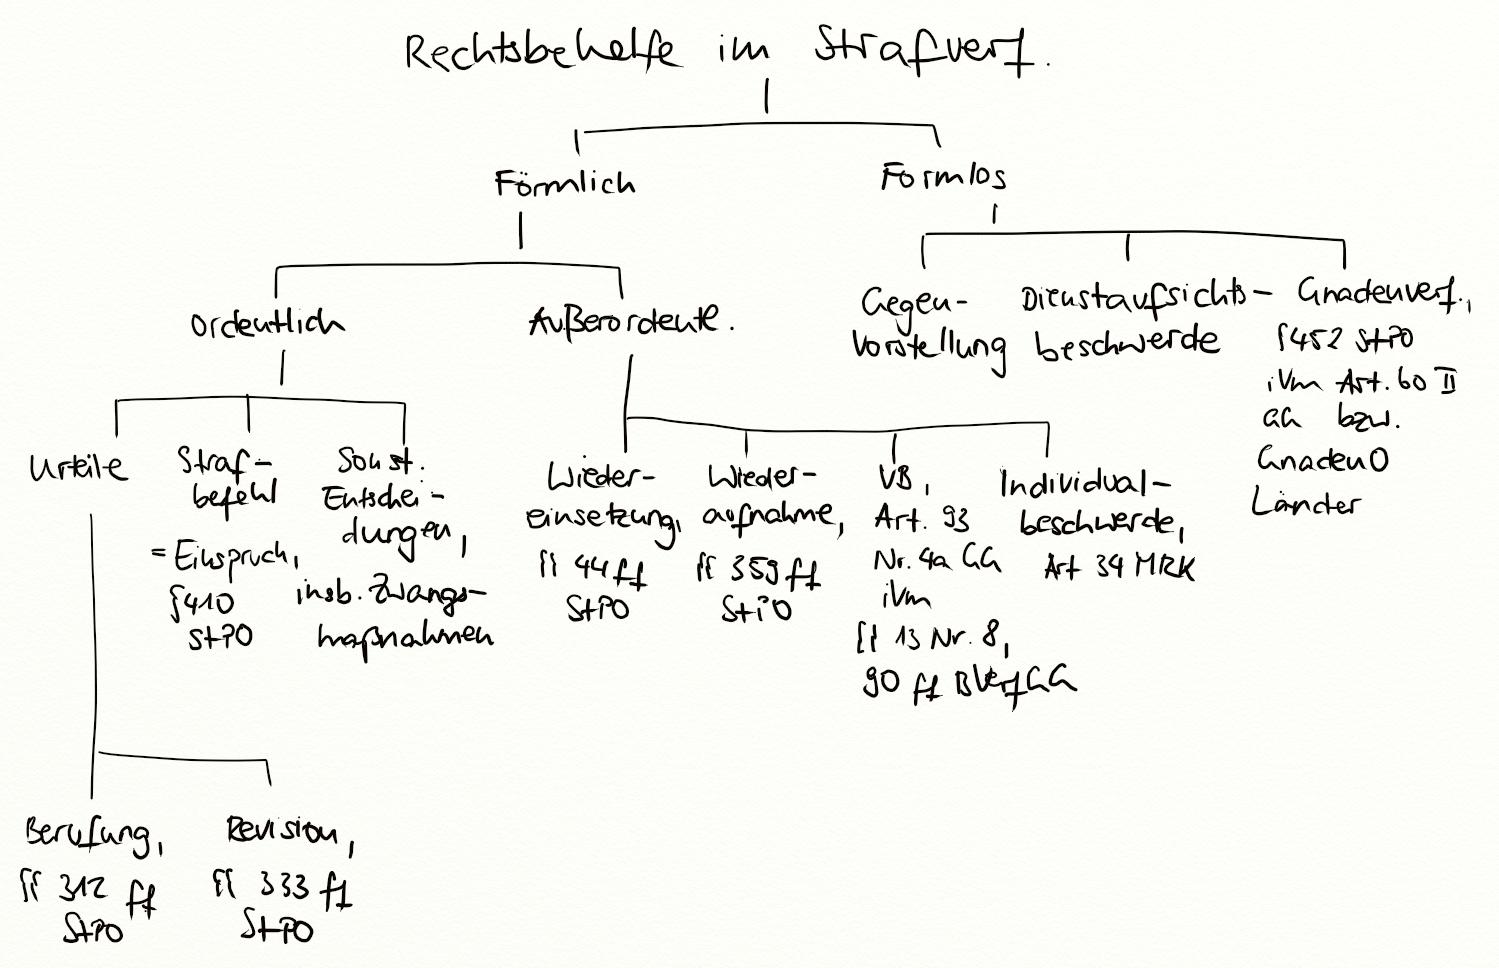 Rechtsbehelfe im Strafverf.
Förmlich
Formlos
Ordentlich
Außerordentl.
Gegen-
vorstellung
Dienstaufsichts-
beschwerde
Gnadenverf.,
§452 StPO
iVm Art. 60 II
GG bzw.
GnadenO
Länder
Urteile
Straf-
befehl
= Einspruch,
§410
StPO
Sonst.
Entschei-
dungen,
insb. Zwangs-
maßnahmen
Wieder-
einsetzung,
§§ 44 ff
StPO
Wieder-
aufnahme,
§§ 359 ff
StPO
VB,
Art. 93
Nr. 4a GG
iVm
§§ 13 Nr. 8,
90 ff BVerfGG
Individual-
beschwerde,
Art 34 MRK
Berufung,
§§ 312 ff
StPO
Revision,
§§ 333 ff
StPO